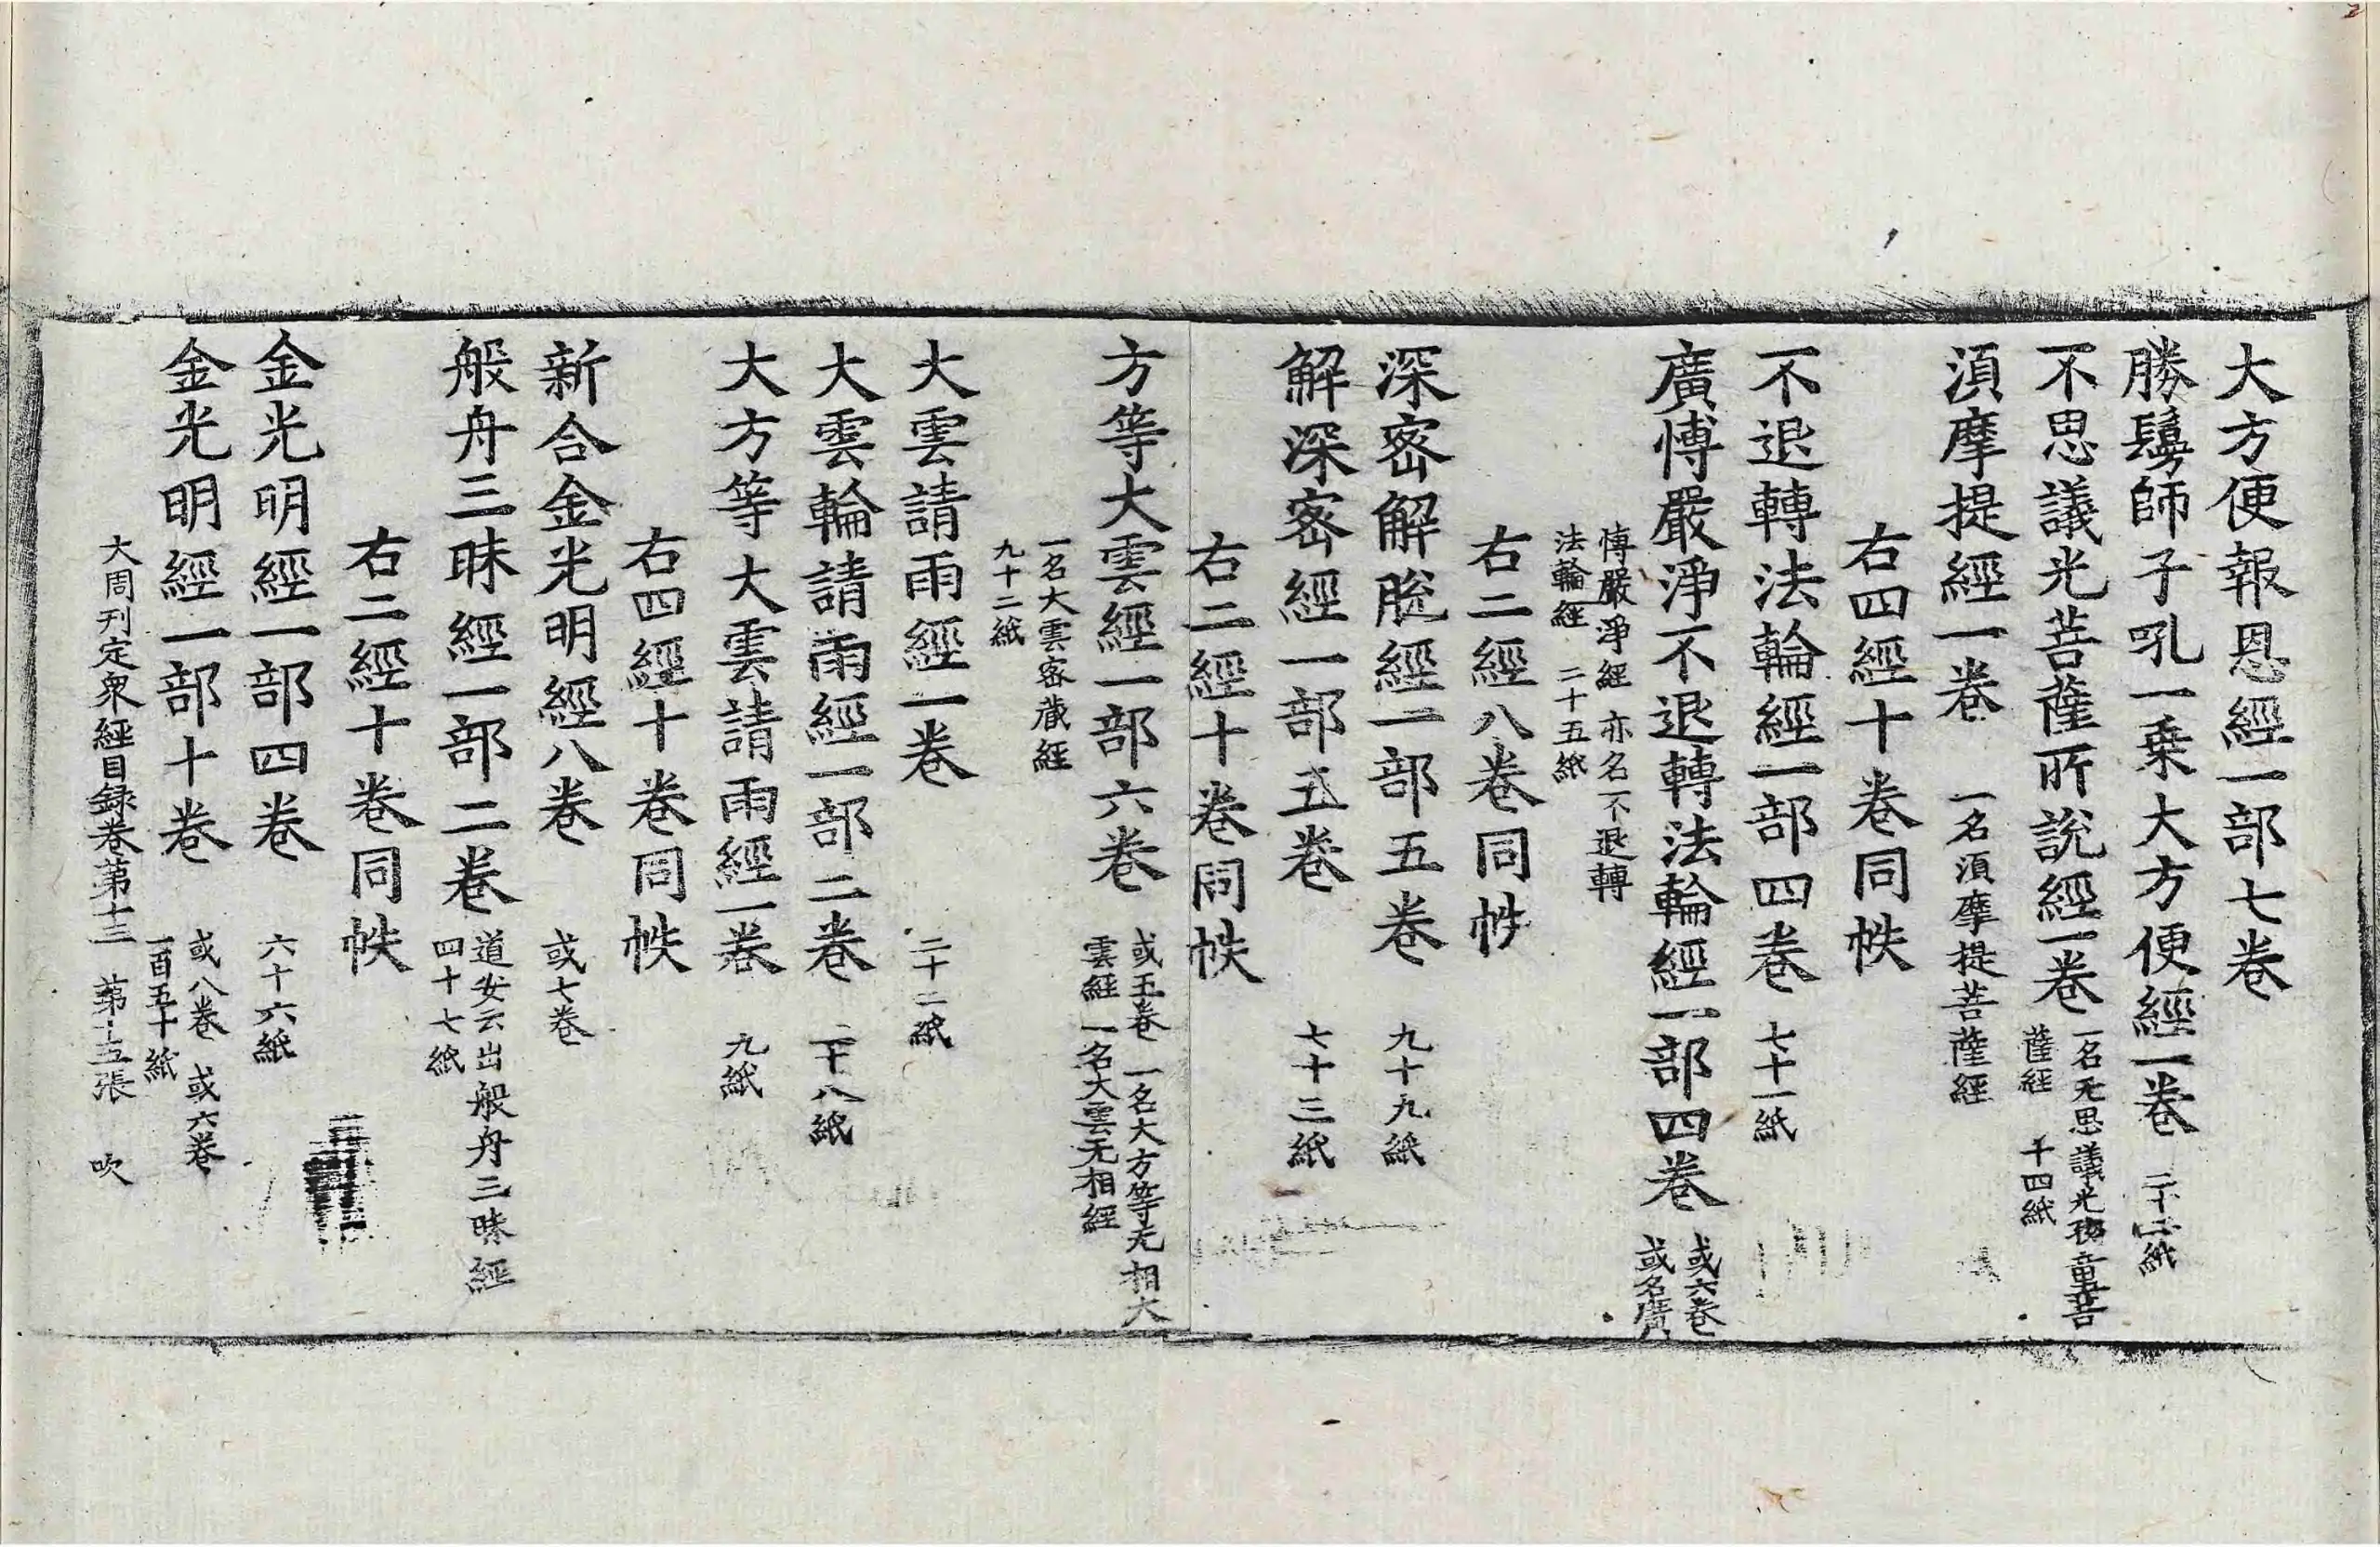 大方便報恩經一部七卷
勝鬘師子吼一乗大方便經一卷 二十二紙
不思議光菩薩所說經一卷 一名无思議光孩童菩薩經 十四紙
湏摩提經一卷 一名湏摩提菩薩經
右四經十卷同帙
不退轉法輪經一部四卷 七十一紙
廣愽嚴淨不退轉法輪經一部四卷 或六卷 或名廣
愽嚴淨經 亦名不退轉法輪經 二十五紙
右二經八卷同帙
深密解脫經一部五卷 九十九紙
解深密經一部五卷 七十三紙
右二經十卷同帙
方等大雲經一部六卷 或五卷 一名大方等无相大雲經 一名大雲无相經
一名大雲密藏經 九十二紙
大雲請雨經一卷 二十二紙
大雲輪請雨經一部二卷 二十八紙
大方等大雲請雨經一卷 九紙
右四經十卷同帙
新合金光明經八卷 或七卷
般舟三昧經一部二卷 道安云出般舟三昧經 四十七紙
右二經十卷同帙
金光明經一部四卷 六十六紙
金光明經一部十卷 或八卷 或六卷 一百五十紙
大周刊定衆經目録卷苐十三 苐十五張 吹